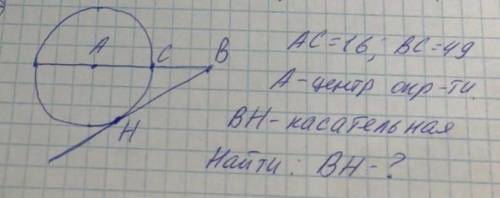 A C B H
AC=16; BC=49
A-центр окр-ти.
BH-касательная
Найти: BH-?